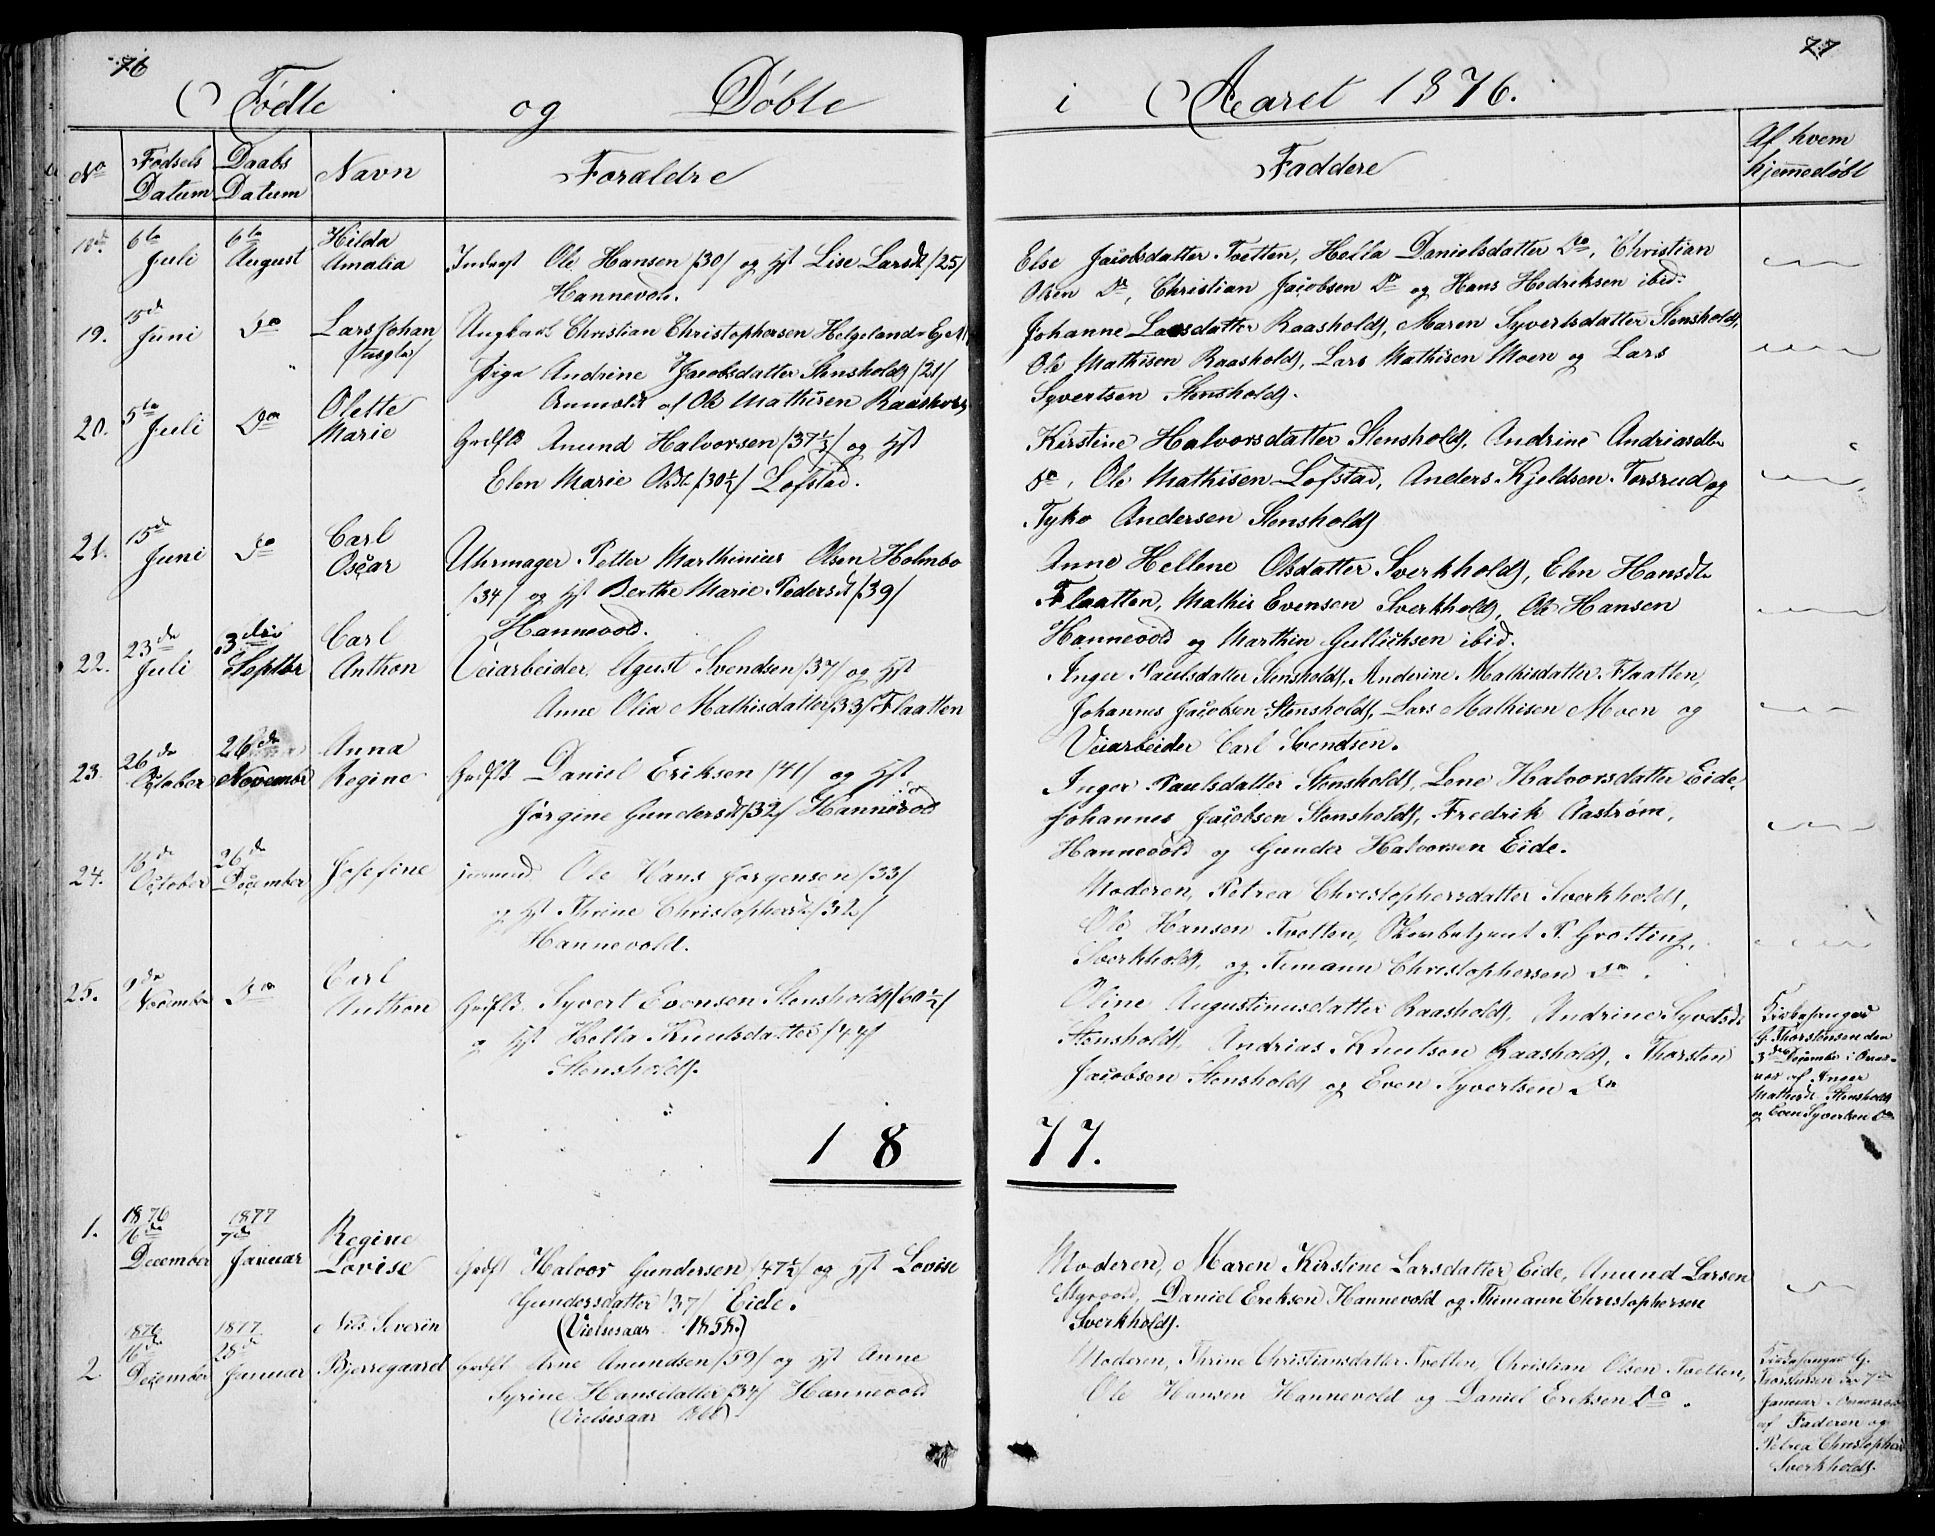 76
77
Födte og Döbte i Aaret 1876.
No Fødsels Datum Daabs Datum Navn Foraldre Faddere Af hvem hjemmedöbt
18de 6te Juli 6te August Hilda Amalia
Inderst Ole Hansen /30/ og Hst Lise Larsdt /25/
Hannevold.
Else Jacobsdatter Tvetten, Hella Danielsdatter Do, Christian
Olsen Do, Christian Jacobsen Do og Hans Hedriksen ibid:
19. 15de Juni Do Lars Johan
Ungkarl Christian Christophersen Helgeland
Pige Andrine Jacobsdatter Stensholdt /21/
Anmeldt af Ole Mathisen Raasholdt
Johanne Larsdatter Raasholdt, Maren Syvertsdatter Stensholdt,
Ole Mathisen Raasholdt, Lars Mathisen Moen og Lars
Syvertsen Stensholdt.
20. 5te Juli Do Olette Marie
Grdfst Anund Halvorsen /37½/ og Hst
Elen Marie Olsdt /30½/ Lofstad.
Kirstine Halvorsdatter Stensholdt, Andrine Andriasdtr
Do, Ole Mathisen Lofstad, Anders Kjeldsen Forsrud og
Tyko Andersen Stensholdt
21. 15de Juni Do Carl Oscar
Uhrmager Petter Marthinius Olsen Holmbo
/34/ og Hst Berthe Marie Pedersdt /39/
Hannevold.
Anne Hellene Olsdatter Sverkholdt, Elen Hansdtr
Flaatten, Mathis Evensen Sverkholdt, Ole Hansen
Hannevold og Marthin Gulliksen ibid.
22. 23de Juli 3die Septbr Carl Anthon
Veiarbeider Agust Svendsen /37/ og Hst
Anne Olia Mathisdatter /33/ Flaatten
Inger Paulsdatter Stensholdt, Anderine Mathisdatter Flaatten,
Johannes Jacobsen Stensholdt, Lars Mathisen Moen og
Veiarbeider Carl Svendsen.
23. 26de October 26de November Anna Regine
Grdfst Daniel Eriksen /41/ og Hst
Jørgine Gundersdt /32/ Hannevold
Inger Paulsdatter Stensholdt, Lene Halvorsdatter Eide,
Johannes Jacobsen Stensholdt, Fredrik Aaström,
Hannevold og Gunder Halvorsen Eide.
24. 16de October 26de December Josefine
Ole Hans Jørgensen /33/
og Hst Thrine Christophersdt /32/
Hannevold.
Moderen, Petrea Christophersdatter Sverkholdt,
Ole Hansen Tvetten, P. Grötting,
Sverkholdt, og Temann Christophersen Do.
25. 9de November Do Carl Anthon
Grdfst Syvert Evensen Stensholdt /60½/
og Hst Hella Knutsdatter /44/
Stensholdt.
Oline Augustinusdatter Raasholdt, Andrine Syvertsdt
Stensholdt, Andrias Knutson Raasholdt, Thorsten
Jacobsen Stensholdt og Even Syvertsen Do
Kirkesanger
G. Thorstensen den
3die December i
af Inger
Mathisdt Stensholdt
og Even Syvertsen Do
1877.
1. 1876 16de December 1877 7de Januar Regine Lovise
Grdfst Halvor Gundersen /47½/ og Hst Lovise
Gundersdatter /37/ Eide.
(Vielsesaar 1858.)
Moderen, Maren Kirstine Larsdatter Eide, Anund Larsen
Daniel Ereksen Hannevold og Themann Christophersen
Sverkholdt.
2. 1876 16de December 1877 28de Januar Nils Severin Bjerregaard
Grdfst Arne Anundsen /59/ og Hst Anne
Syrine Hansdatter /34/ Hannevold
(Vielsesaar
Moderen, Thrine Christiansdatter Tvetten, Christian Olsen Tvetten,
Ole Hansen Hannevold og Daniel Ereksen Do.
Kirkesanger G.
Thorstensen den 7de
Januar
af Faderen og
Petrea Christophersd
Sverkholdt.